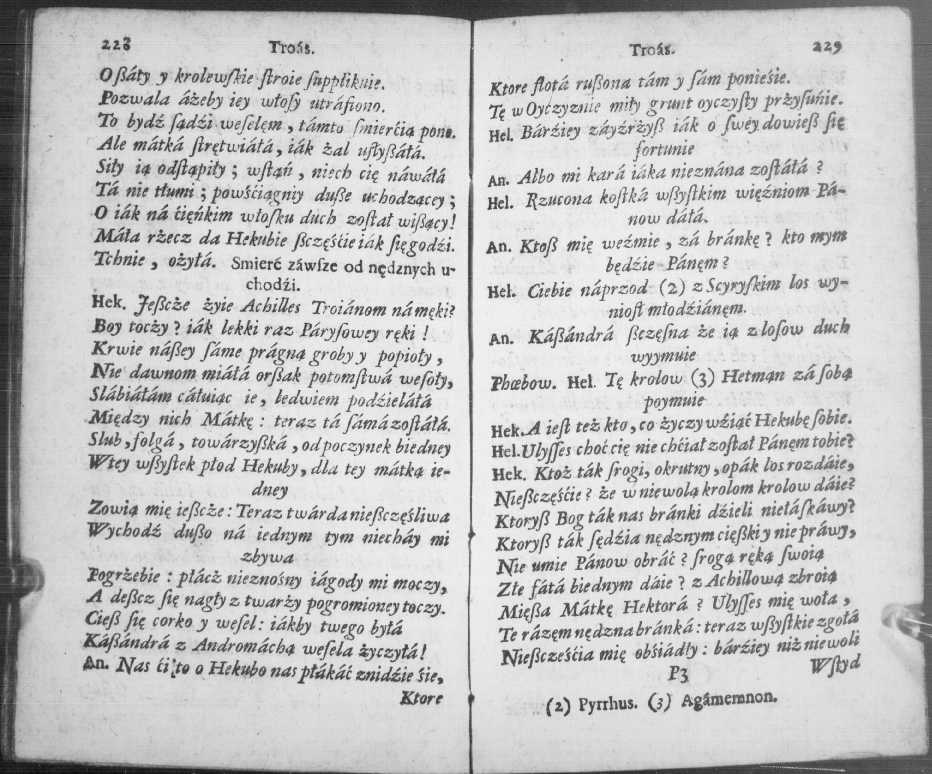 228 Troás.
Oßáty y krolewſkie ſtroie ſupplikuie.
Pozwala áżeby iey włoſy utráfiono.
To bydź ſądźi weſelem, támto ſmierćią pono.
Ale mátká ſtrętwiáłá, iák żal uſłyßáłá.
Siły ią odſtąpiły; wſtáń, niech cię náwáłá
Tá nie tłumi; powśćiągniy duße uchodzącey;
O iák ná ćięńkim włoſku duch zoſtał wißący!
Máła rżecz da Hekubie ßczęśćie iák ſię godźi.
Tchnie, ożyłá. Smierć záwſze od nędznych u-
chodźi.
Hek. Jeßcże żyie Achilles Troiánom ná męki?
Boy tocży? iák lekki raz Páryſowey ręki!
Krwie náßey ſáme prágną groby y popioły,
Nie dawnom miáłá orßak potomſtwá weſoły,
Słábiáłám cáłuiąc ie, ledwiem podźieláłá
Między nich Mátkę: teraz tá ſámá zoſtáłá.
Slub, folgá, towárzyßká, odpoczynek biedney
W tey wßyſtek płod Hekuby, dla tey mátką ie-
dney
Zowią mię ießcże: Teraz twárda nießczęśliwa
Wychodź dußo ná iednym tym niecháy mi
zbywa
Pogrżebie: płácż nieznośny iágody mi moczy,
A deßcz ſię nagły z twarży pogromioney toczy.
Cieß ſię corko y weſel: iákby twego byłá
Káßándrá z Andromáchą weſela życzyłá!
An. Nas ći to o Hekubo nas płákáć znidźie śie,
Ktore
Troás. 229
Ktore flotá rußona tám y ſám ponieśie.
Tę w Oyczyznie miły grunt oyczyſty prżyſuńie.
Hel. Bárźiey záyźrżyß iák o ſwéy dowieß ſię
fortunie
An. Albo mi kará iáka nieznána zoſtáłá?
Hel. Rzucona koſtká wßyſtkim więźniom Pá-
now dáłá.
An. Ktoß mię weźmie, zá bránkę? kto mym
będźie Pánęm?
Hel. Ciebie náprzod (2) z Scyryſkim los wy-
nioſł młodźiánęm.
An. Káßándrá ßczęſna że ią z loſow duch
wyymuie
Phœbow. Hel. Tę krolow (3) Hetmąn zá ſobą
poymuie
Hek. A ieſt też kto, co życzy wźiąć Hekubę ſobie.
Hel. Ulyſſes choć cię nie chćiał zoſtał Pánęm tobie?
Hek. Ktoż ták ſrogi, okrutny, opák los rozdáie,
Nießczęśćie? że w niewolą krolom krolow dáie?
Ktoryß Bog ták nas bránki dźieli niełáſkáwy?
Ktoryß ták ſędźia nędznym cięßki y nie práwy,
Nie umie Pánow obráć? ſrogą ręką ſwoią
Złe fátá biednym dáie? z Achillową zbroią
Mießa Mátkę Hektorá? Ulyſſes mię woła,
Te rázęm nędzna bránká: teraz wßyſtkie zgołá
Nießczeſćia mię obśiádły: bárźiey niż niewoli
P3 Wſtyd
(2) Pyrrhus. (3) Agámemnon.